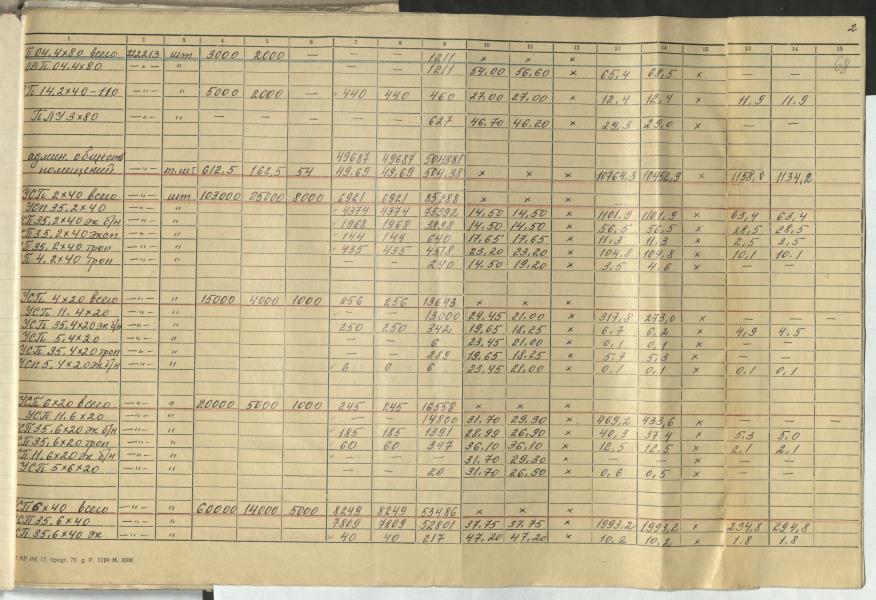 2
68
1 2 3 4 5 6 7 8 9 10 11 12 13 14 15 13 14 15
П 04.4х80 всего 222213 шт 3000 2000 — — — 1211 х х х
ПВП 04.4х80 —"— " 1211 54,00 56,60 х 65,4 68,5 х — —
П 14.2х40-110 —"— " 5000 2000 — 440 440 460 27,00 27,00 х 12,4 12,4 х 11,9 11,9
ПЛУ 3х80 —"— " — — — — — 627 46,70 46,20 х 29,3 29,0 х — —
админ. обществ 49687 49687 504381
помещений —"— т.шт 612,5 162,5 54 49,69 49,69 504,38 х х х 10764,3 10452,9 х 1158,0 1134,2
УСП 2х40 всего —"— шт 103000 25000 8000 6921 6921 85288 х х х
УСП 35.2х40 —"— " 4374 4374 75292 14,50 14,50 х 1101,9 1101,9 х 63,4 63,4
СП35.2х40 эк б/н —"— " 1968 1968 3898 14,50 14,50 х 56,5 56,5 х 28,5 28,5
СП35.2х40 эксп —"— " 144 144 640 17,65 17,65 х 11,3 11,3 х 2,5 2,5
П 35.2х40 троп —"— " 435 435 4518 23,20 23,20 х 104,8 104,8 х 10,1 10.1
П 4.2х40 троп —"— " — — 240 14,50 19,20 х 3,5 4,6 х — —
УСП 4х20 всего —"— " 15000 4000 1000 256 256 13643 х х х
УСП 11.4х20 —"— " — — 13000 24.45 21.00 х 317,8 273,0 х — — —
УСП 35.4х20 эк б/н —"— " 250 250 342 19,65 18,25 х 6,7 6,2 х 4,9 4,5
УСП 5.4х20 —"— " — — 6 23,45 21.00 х 0,1 0,1 х — —
УСП 35.4х20 троп —"— " — — 289 19,65 18.25 х 5.7 5,3 х — —
УСП 5,4х20 эк б/н —"— " 6 6 6 23,45 21,00 х 0,1 0,1 х 0,1 0,1
УСП 6х20 всего —"— " 20000 5000 1000 245 245 16558 х х х
УСП 11.6х20 —"— " — — 14800 31.70 29,30 х 469,2 433,6 х — — —
СП35.6х20 эк б/н —"— " 185 185 1391 28,99 26,90 х 40,3 37.4 х 5,3 5,0
СП35.6х20 троп —"— " 60 60 347 36,10 36,10 х 12,5 12,5 х 2,1 2,1
СП 11.6х20 эк б/н —"— " 31.70 29,30 х — — х — —
УСП 5х6х20 —"— " 20 31.70 26,90 х 0,6 0,5 х — —
СП 6х40 всего —"— " 60000 14000 5000 8249 8249 53486 х х х
СП35,6х40 —"— " 7809 7809 52801 37,75 37,75 х 1993,2 1993,2 х 294,8 294,8
СП 35.6х40 эк —"— " 40 40 217 47,20 47,20 х 10,2 10,2 х 1.8 1.8
MP PK 17. tipogr. 78. g. P. 1124 M. 3000